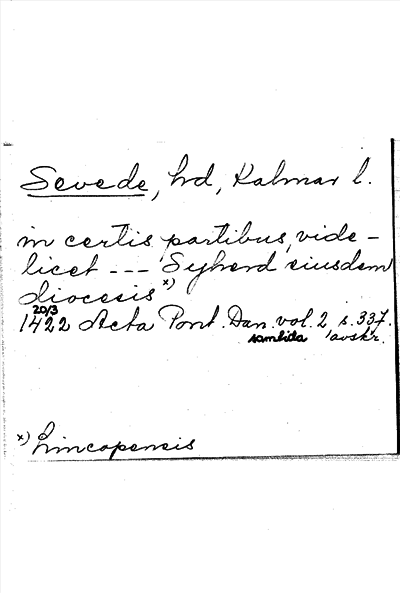 Sevede, hd, Kalmar l.
in certis partibus, vide-
licet --- Syherd eiusdem
diocesis x)
20/3
1422 Acta Pont. Dan. vol. 2 s. 337.
samtida avskr.
x) Lincopensis